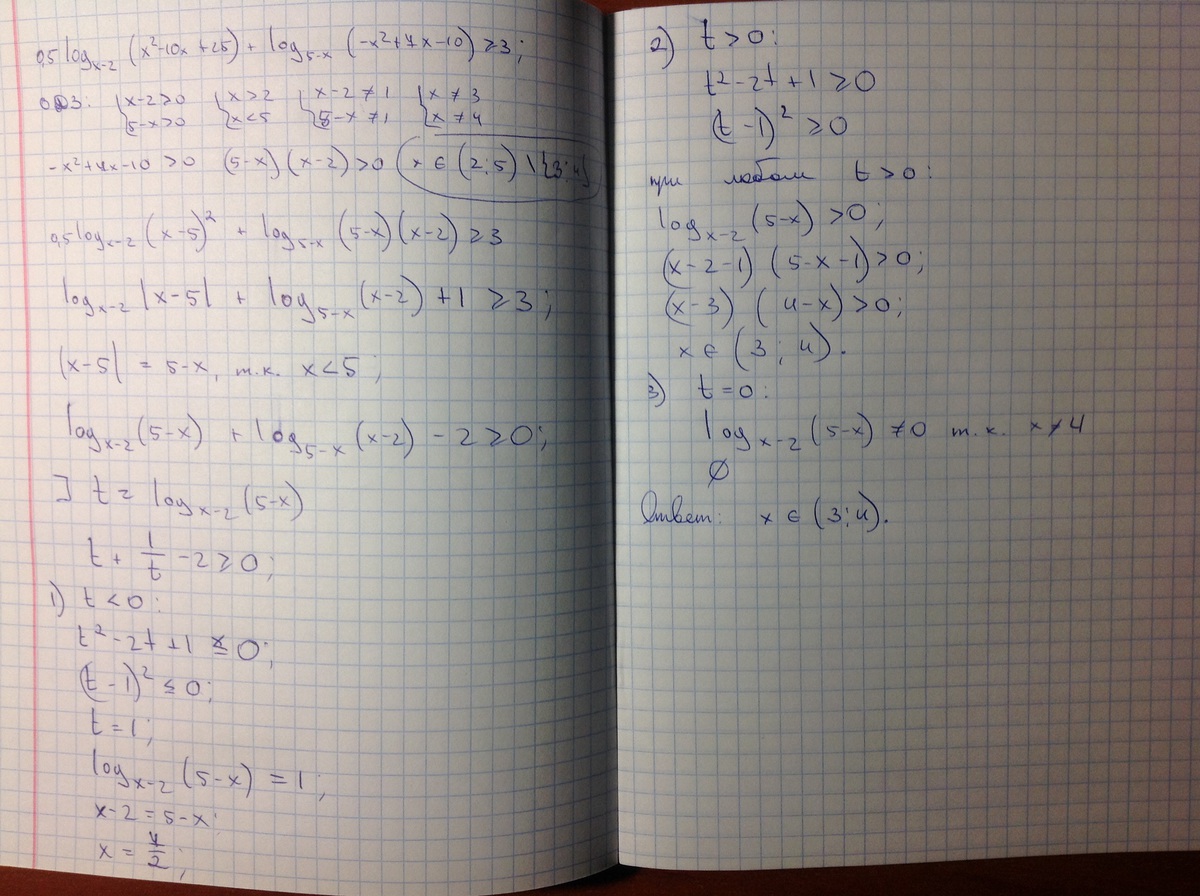 0,5 log_{x-2} (x²-10x+25) + log_{5-x} (-x²+7x-10) ≥ 3;
ОДЗ: {x-2>0 {x>2 {x-2≠1 {x≠3
{5-x>0 {x<5 {5-x≠1 {x≠4
-x²+7x-10>0 (5-x)(x-2)>0 x ∈ (2;5) \ {3;4}
0,5 log_{x-2} (x-5)² + log_{5-x} (5-x)(x-2) ≥ 3
log_{x-2} |x-5| + log_{5-x} (x-2) + 1 ≥ 3;
|x-5| = 5-x, т.к. x<5;
log_{x-2} (5-x) + log_{5-x} (x-2) - 2 ≥ 0;
] t = log_{x-2} (5-x)
t + 1/t - 2 ≥ 0;
1) t < 0:
t² - 2t + 1 ≤ 0;
(t-1)² ≤ 0;
t = 1;
log_{x-2} (5-x) = 1;
x-2 = 5-x;
x = 7/2;
2) t > 0:
t² - 2t + 1 ≥ 0
(t-1)² ≥ 0
при любом t > 0:
log_{x-2} (5-x) > 0;
(x-2-1) (5-x-1) > 0;
(x-3) (4-x) > 0;
x ∈ (3; 4).
3) t = 0:
log_{x-2} (5-x) ≠ 0 т.к. x ≠ 4
∅
Ответ: x ∈ (3; 4).